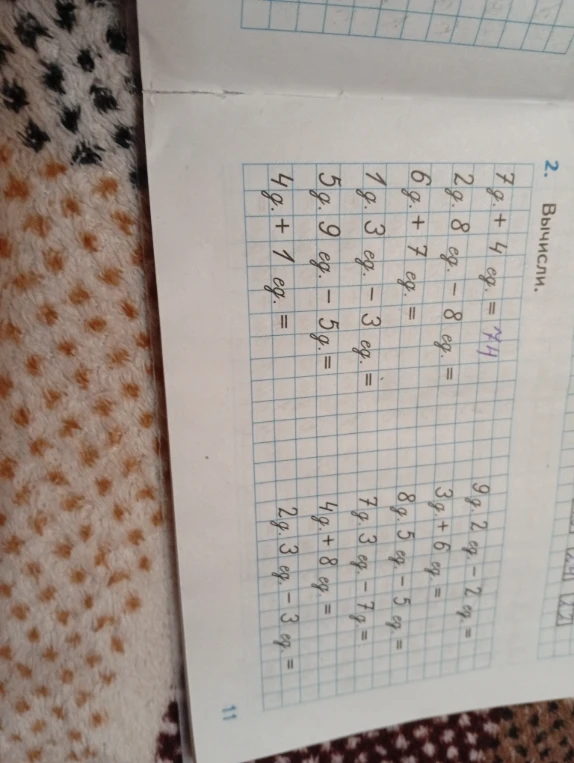 2. Вычисли.
7 д. + 4 ед. = 74
2 д. 8 ед. – 8 ед. =
6 д. + 7 ед. =
1 д. 3 ед. – 3 ед. =
5 д. 9 ед. – 5 д. =
4 д. + 1 ед. =
9 д. 2 ед. – 2 ед. =
3 д. + 6 ед. =
8 д. 5 ед. – 5 ед. =
7 д. 3 ед. – 7 д. =
4 д. + 8 ед. =
2 д. 3 ед. – 3 ед. =
11